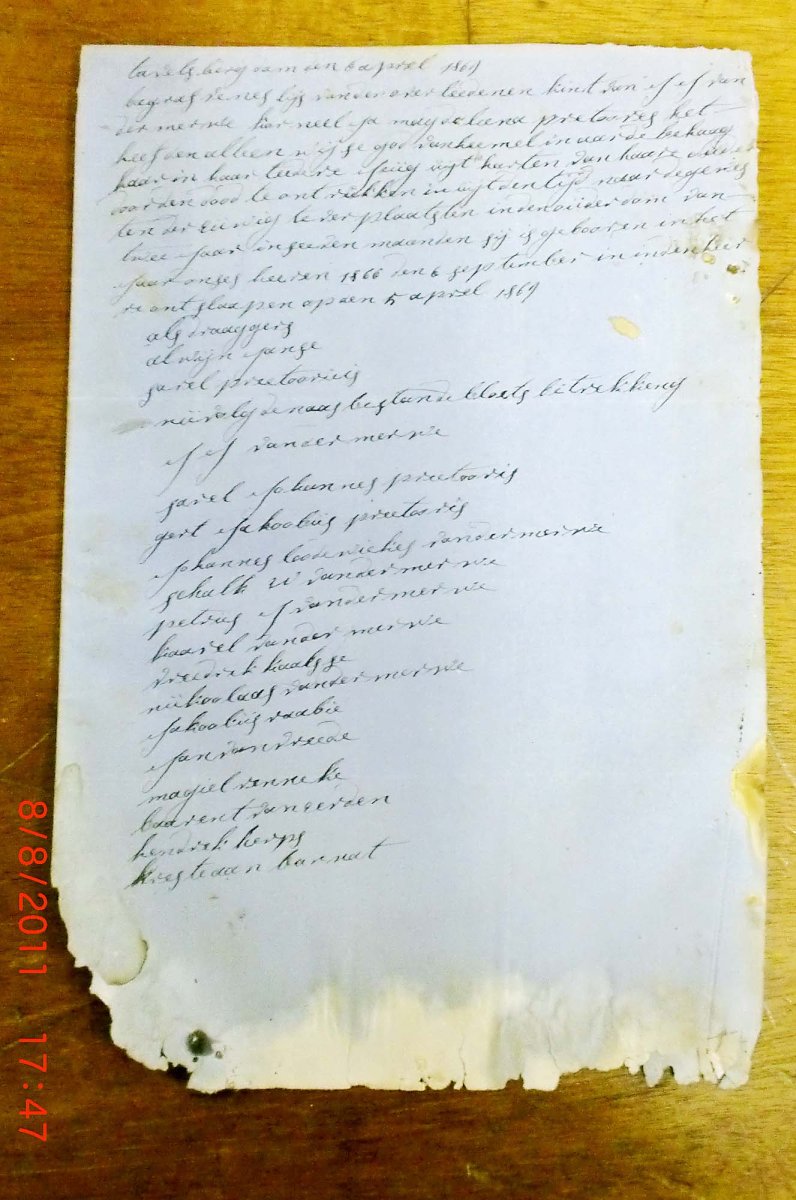 tavelsberg dam den 6 aprel 1869
begrafvenes lijs van der over leedenen kint van J J van
der merwe kor neel Ja magdaleena pretooris het
heef den alleen wijse god van heemel in aarde behaag
haar in haar teedere Jeug uijt harten van haare ouders
doorden dood te ont rukken in uijt den tijd naar de
ten der euwig te ver plaatsten inden ouderdom van
twee Jaar in seeven maanden sij is gebooren in het
Jaar onses heeren 1866 den 6 september in inden heer
re ont slaapen op den 5 aprel 1869
als draaggers
alwijn Janse
sarel preetoorius
naas bestande bloets betrekkeng
J J van der merwe
sarel Johannes preetooris
gert Jakoobus preetooris
Johannes loodewickes van der merwe
schalk W van der merwe
petrus J van der merwe
kaarel van der merwe
vreedrik
nikoolaas van der merwe
Jakoobus raabie
Jan van vreede
magiel venneke
baarent van eerden
hendrik herps
kresteaan barnat
8/8/2011 17:47